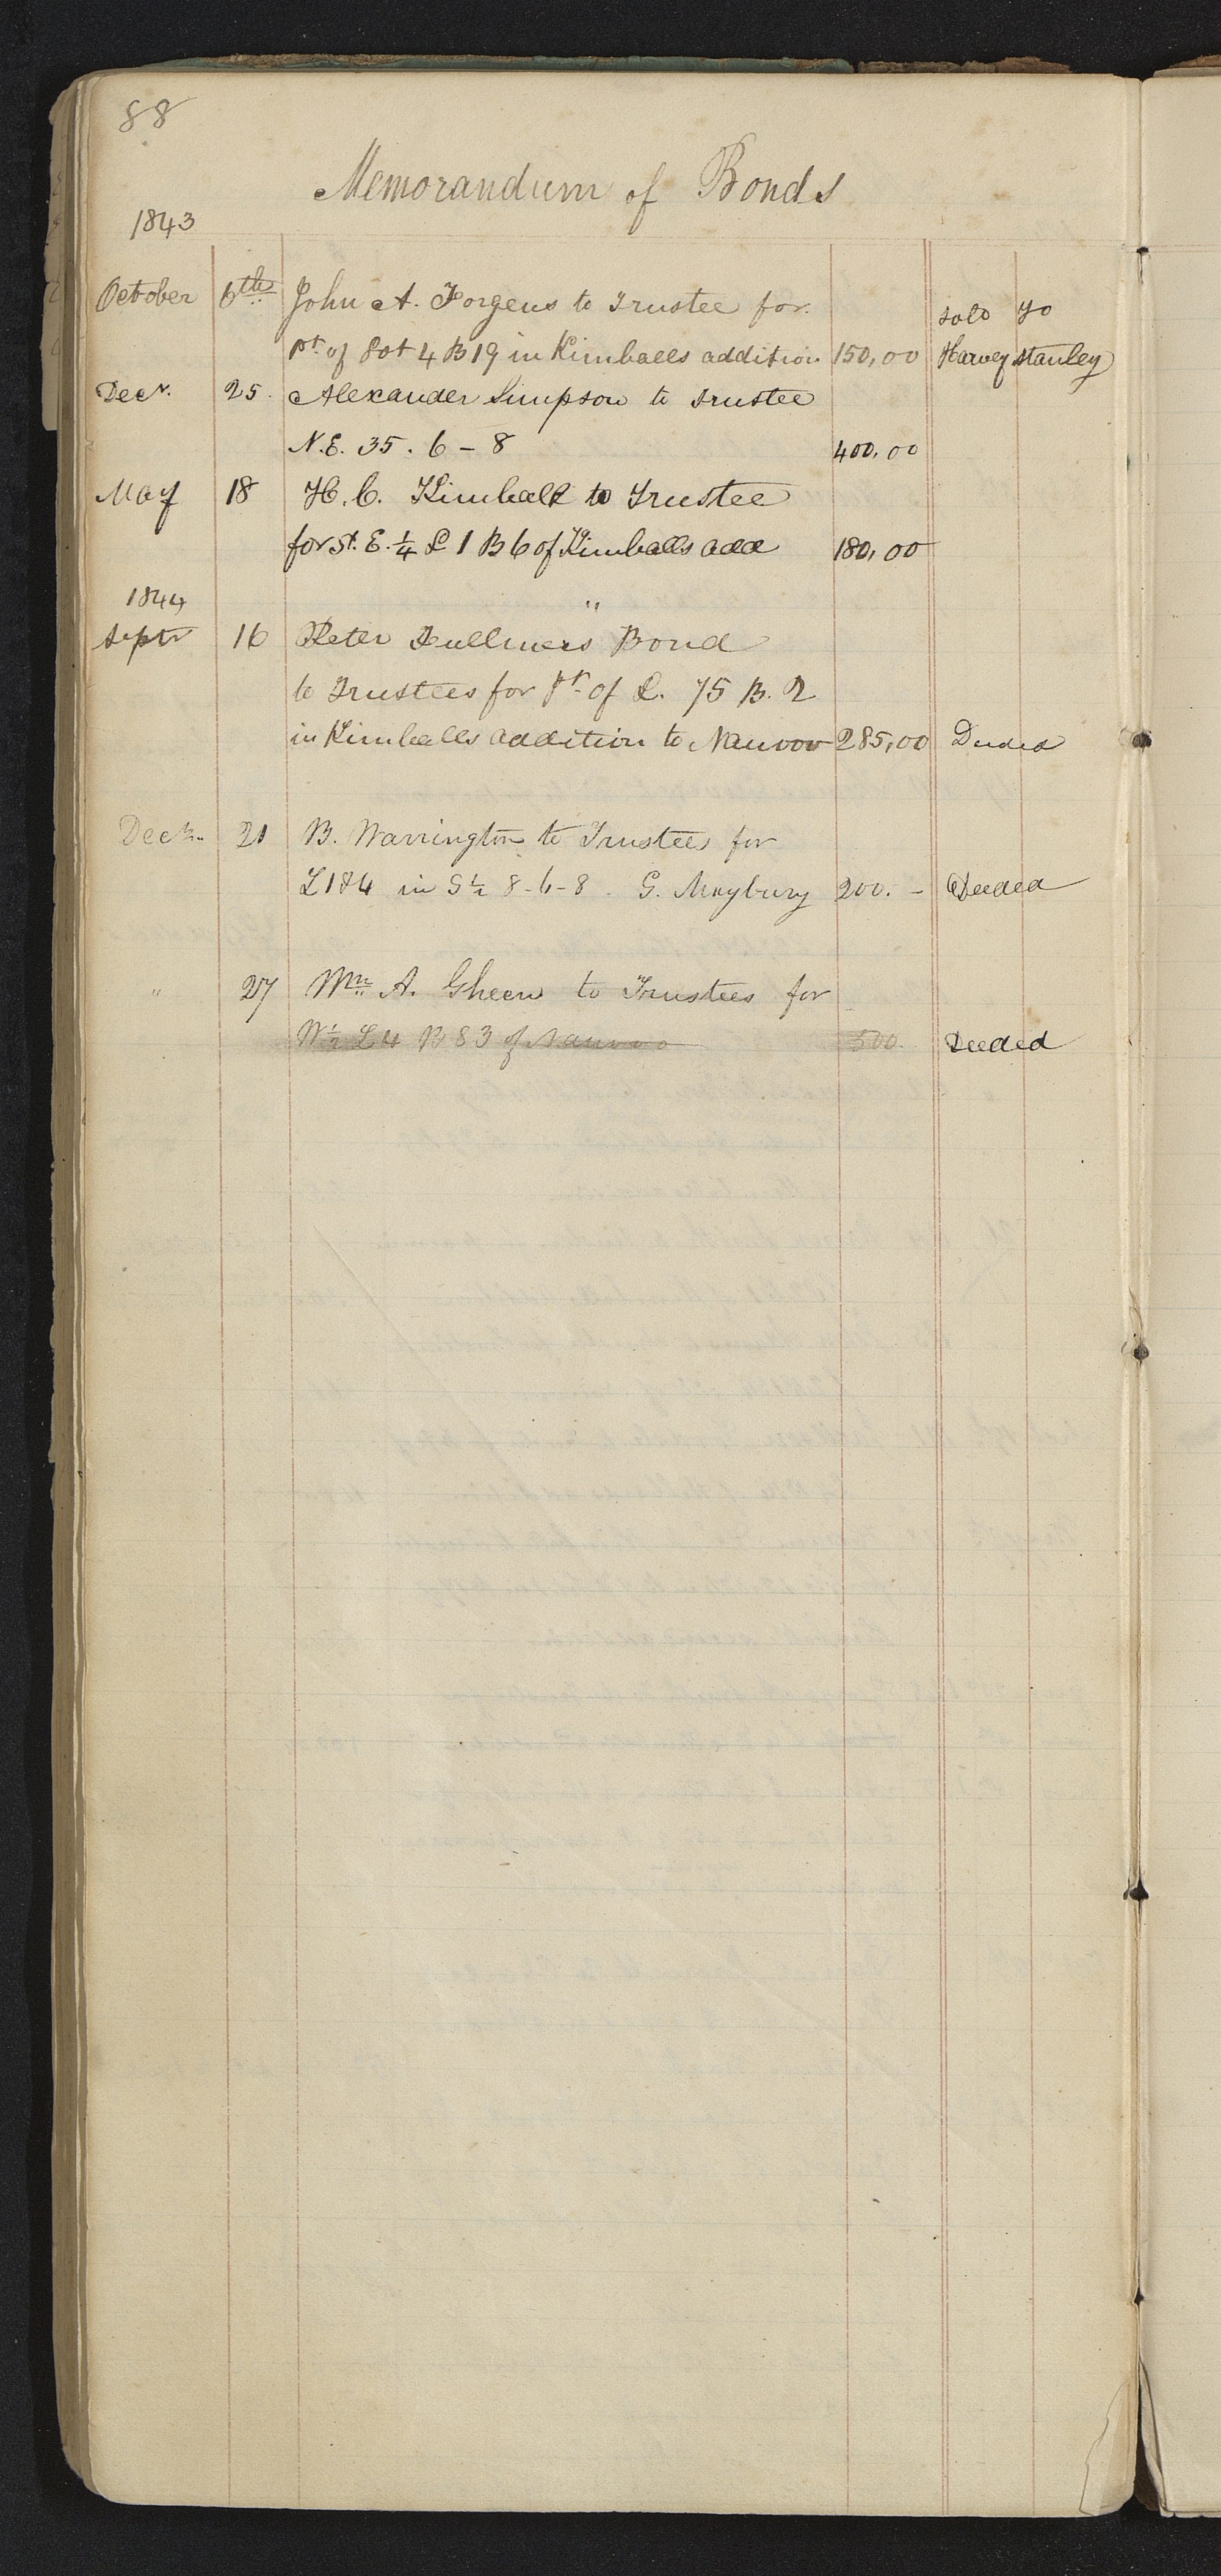 88
Memorandum of Bonds
1843
October 6th John A. Forgeus to Trustee for sold to
Pt. of Lot 4 B 19 in Kimballs addition 150,00 Harvey Stanley
Decr. 25. Alexander Simpson to Trustee
N.E. 35. 6 – 8 400,00
May 18 H. C. Kimball to Trustee
for St. E. ¼ L 1 B 6 of Kimballs add 180,00
1844 "
Septr 16 Peter Bond
to Trustees for Pt. of L. 75 B. 2
in Kimballs addition to Nauvoo 285,00 Deeded
Decr. 21 B. Warrington to Trustees for
L 184 in S ½ 8-6-8 G. Maybury 200. – Deeded
" 27 Wm. A. Gheen to Trustees for
W ½ L 4 B 83 of Nauvoo 500. Deeded